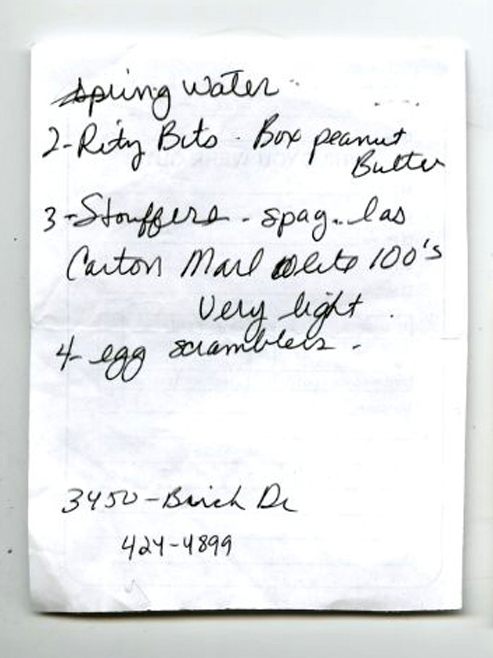 spring water
2-Ritz Bits - Box peanut
Butter
3-Stouffers - spag. - las
Carton Marl white 100's
Very light
4- egg scramblers -
3450-Birch Dr
424-4899